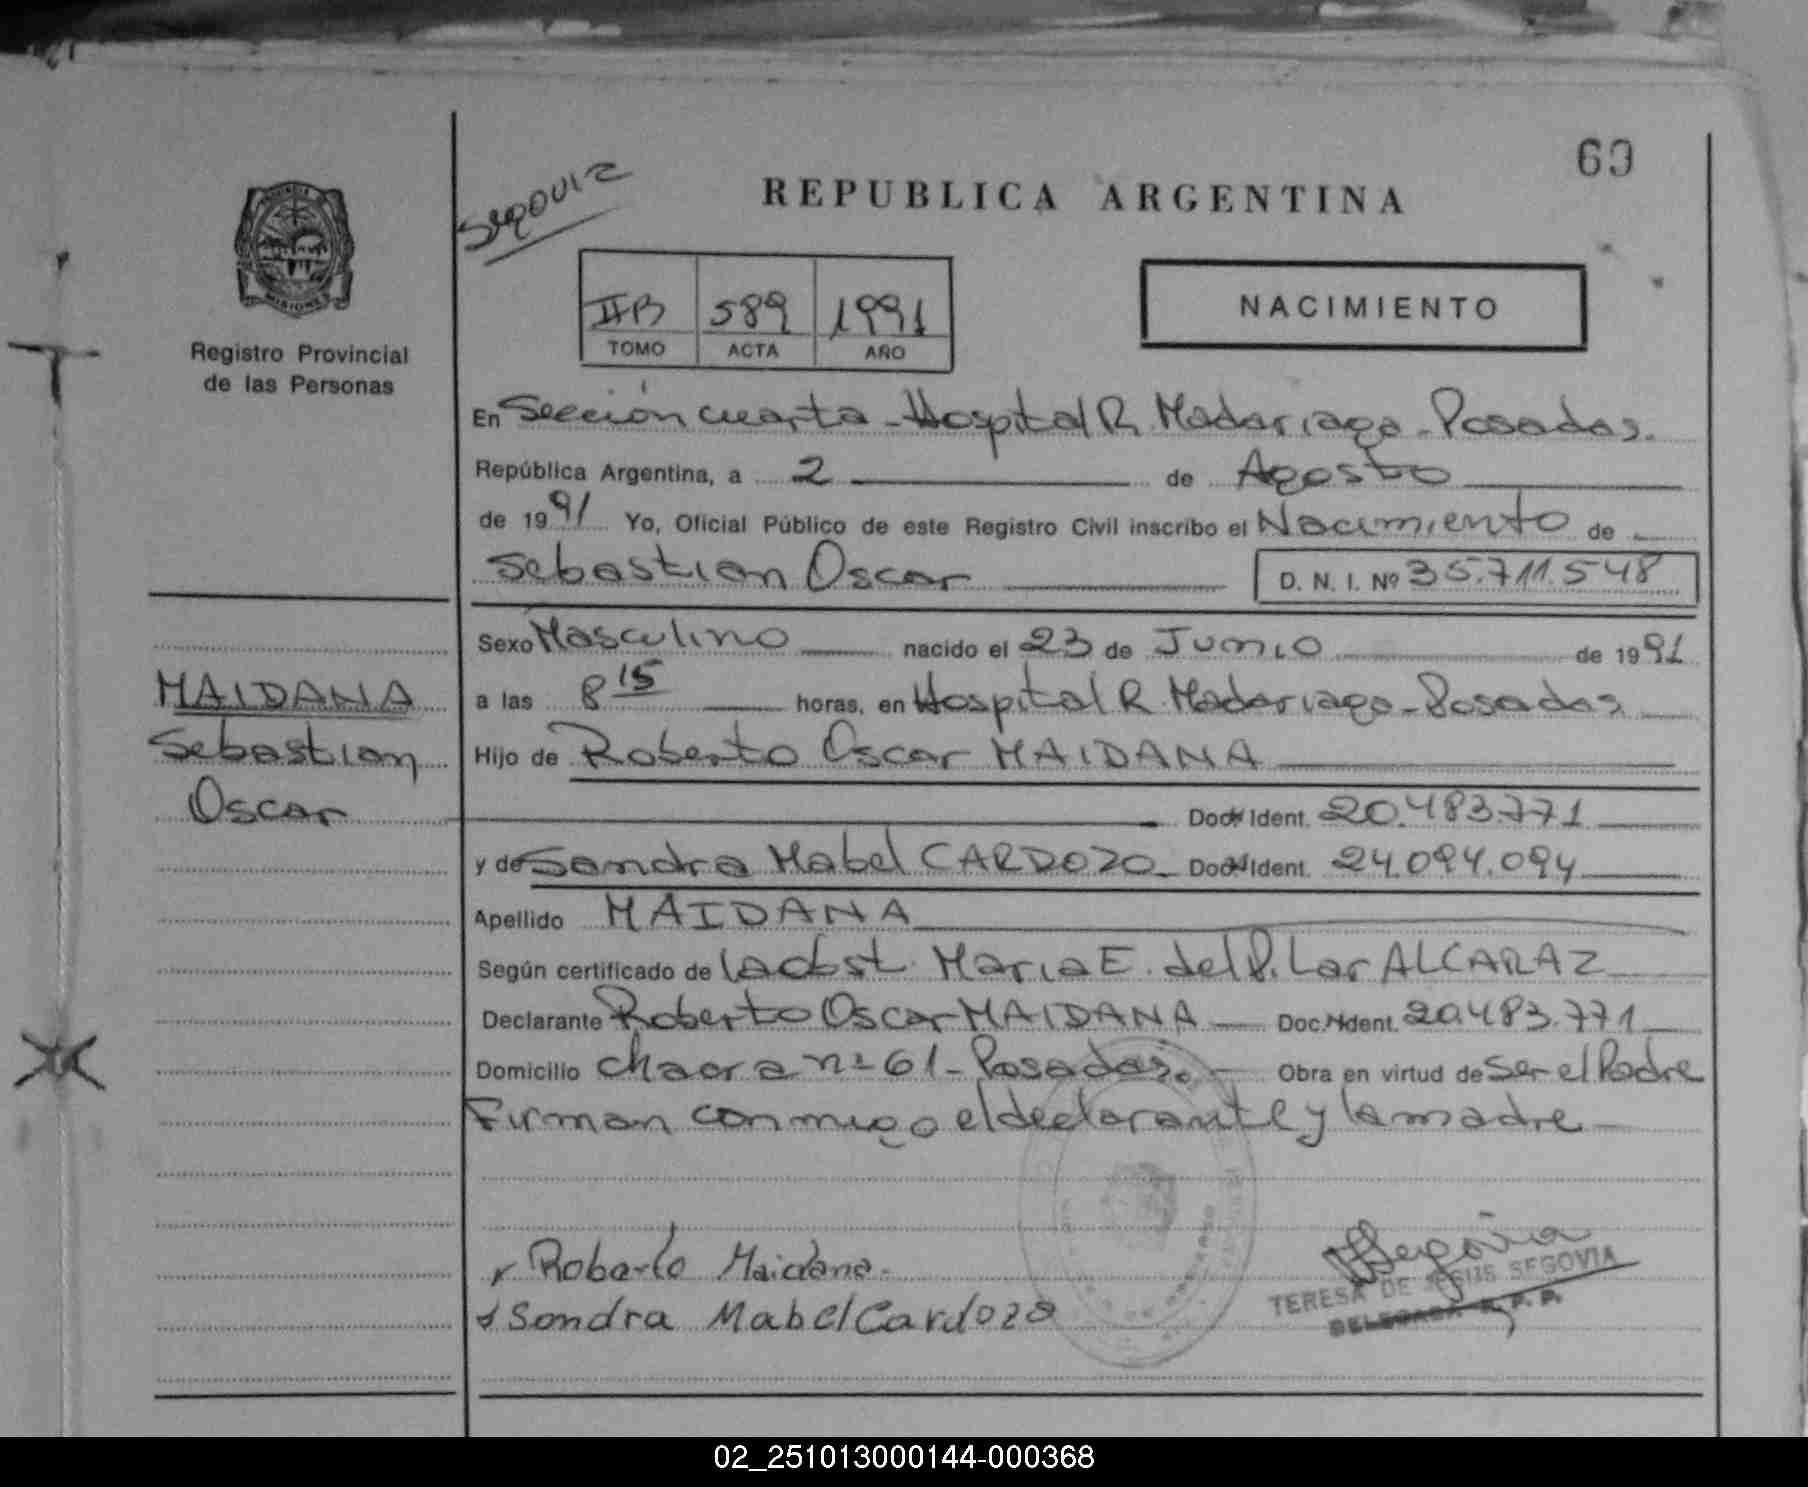 60
Segouiz
REPUBLICA ARGENTINA
PROVINCIA
MISIONES
Registro Provincial
de las Personas
IIB 589 1991
TOMO ACTA AÑO
NACIMIENTO
En Sección cuarta - Hospital R. Madariaga - Posadas.
República Argentina, a 2 de Agosto
de 1991 Yo, Oficial Público de este Registro Civil inscribo el Nacimiento de
Sebastian Oscar D. N. I. Nº 35.711.548
Sexo Masculino nacido el 23 de Junio de 1991
MAIDANA
Sebastian
Oscar
a las 8 15 horas, en Hospital R. Madariaga - Posadas
Hijo de Roberto Oscar MAIDANA
Doc. Ident. 20.483.771
y de Sandra Mabel CARDOZO - Doc. Ident. 24.094.094
Apellido MAIDANA
Según certificado de la obst. Maria E. del Pilar ALCARAZ
Declarante Roberto Oscar MAIDANA Doc. Ident. 20.483.771
Domicilio Chacra nº 61 - Posadas. Obra en virtud de ser el Padre
Firman conmigo el declarante y la madre
Roberto Maidana.
Sandra Mabel Cardozo
Segovia
TERESA DE JESUS SEGOVIA
DELEGADA R. P. P.
02_251013000144-000368